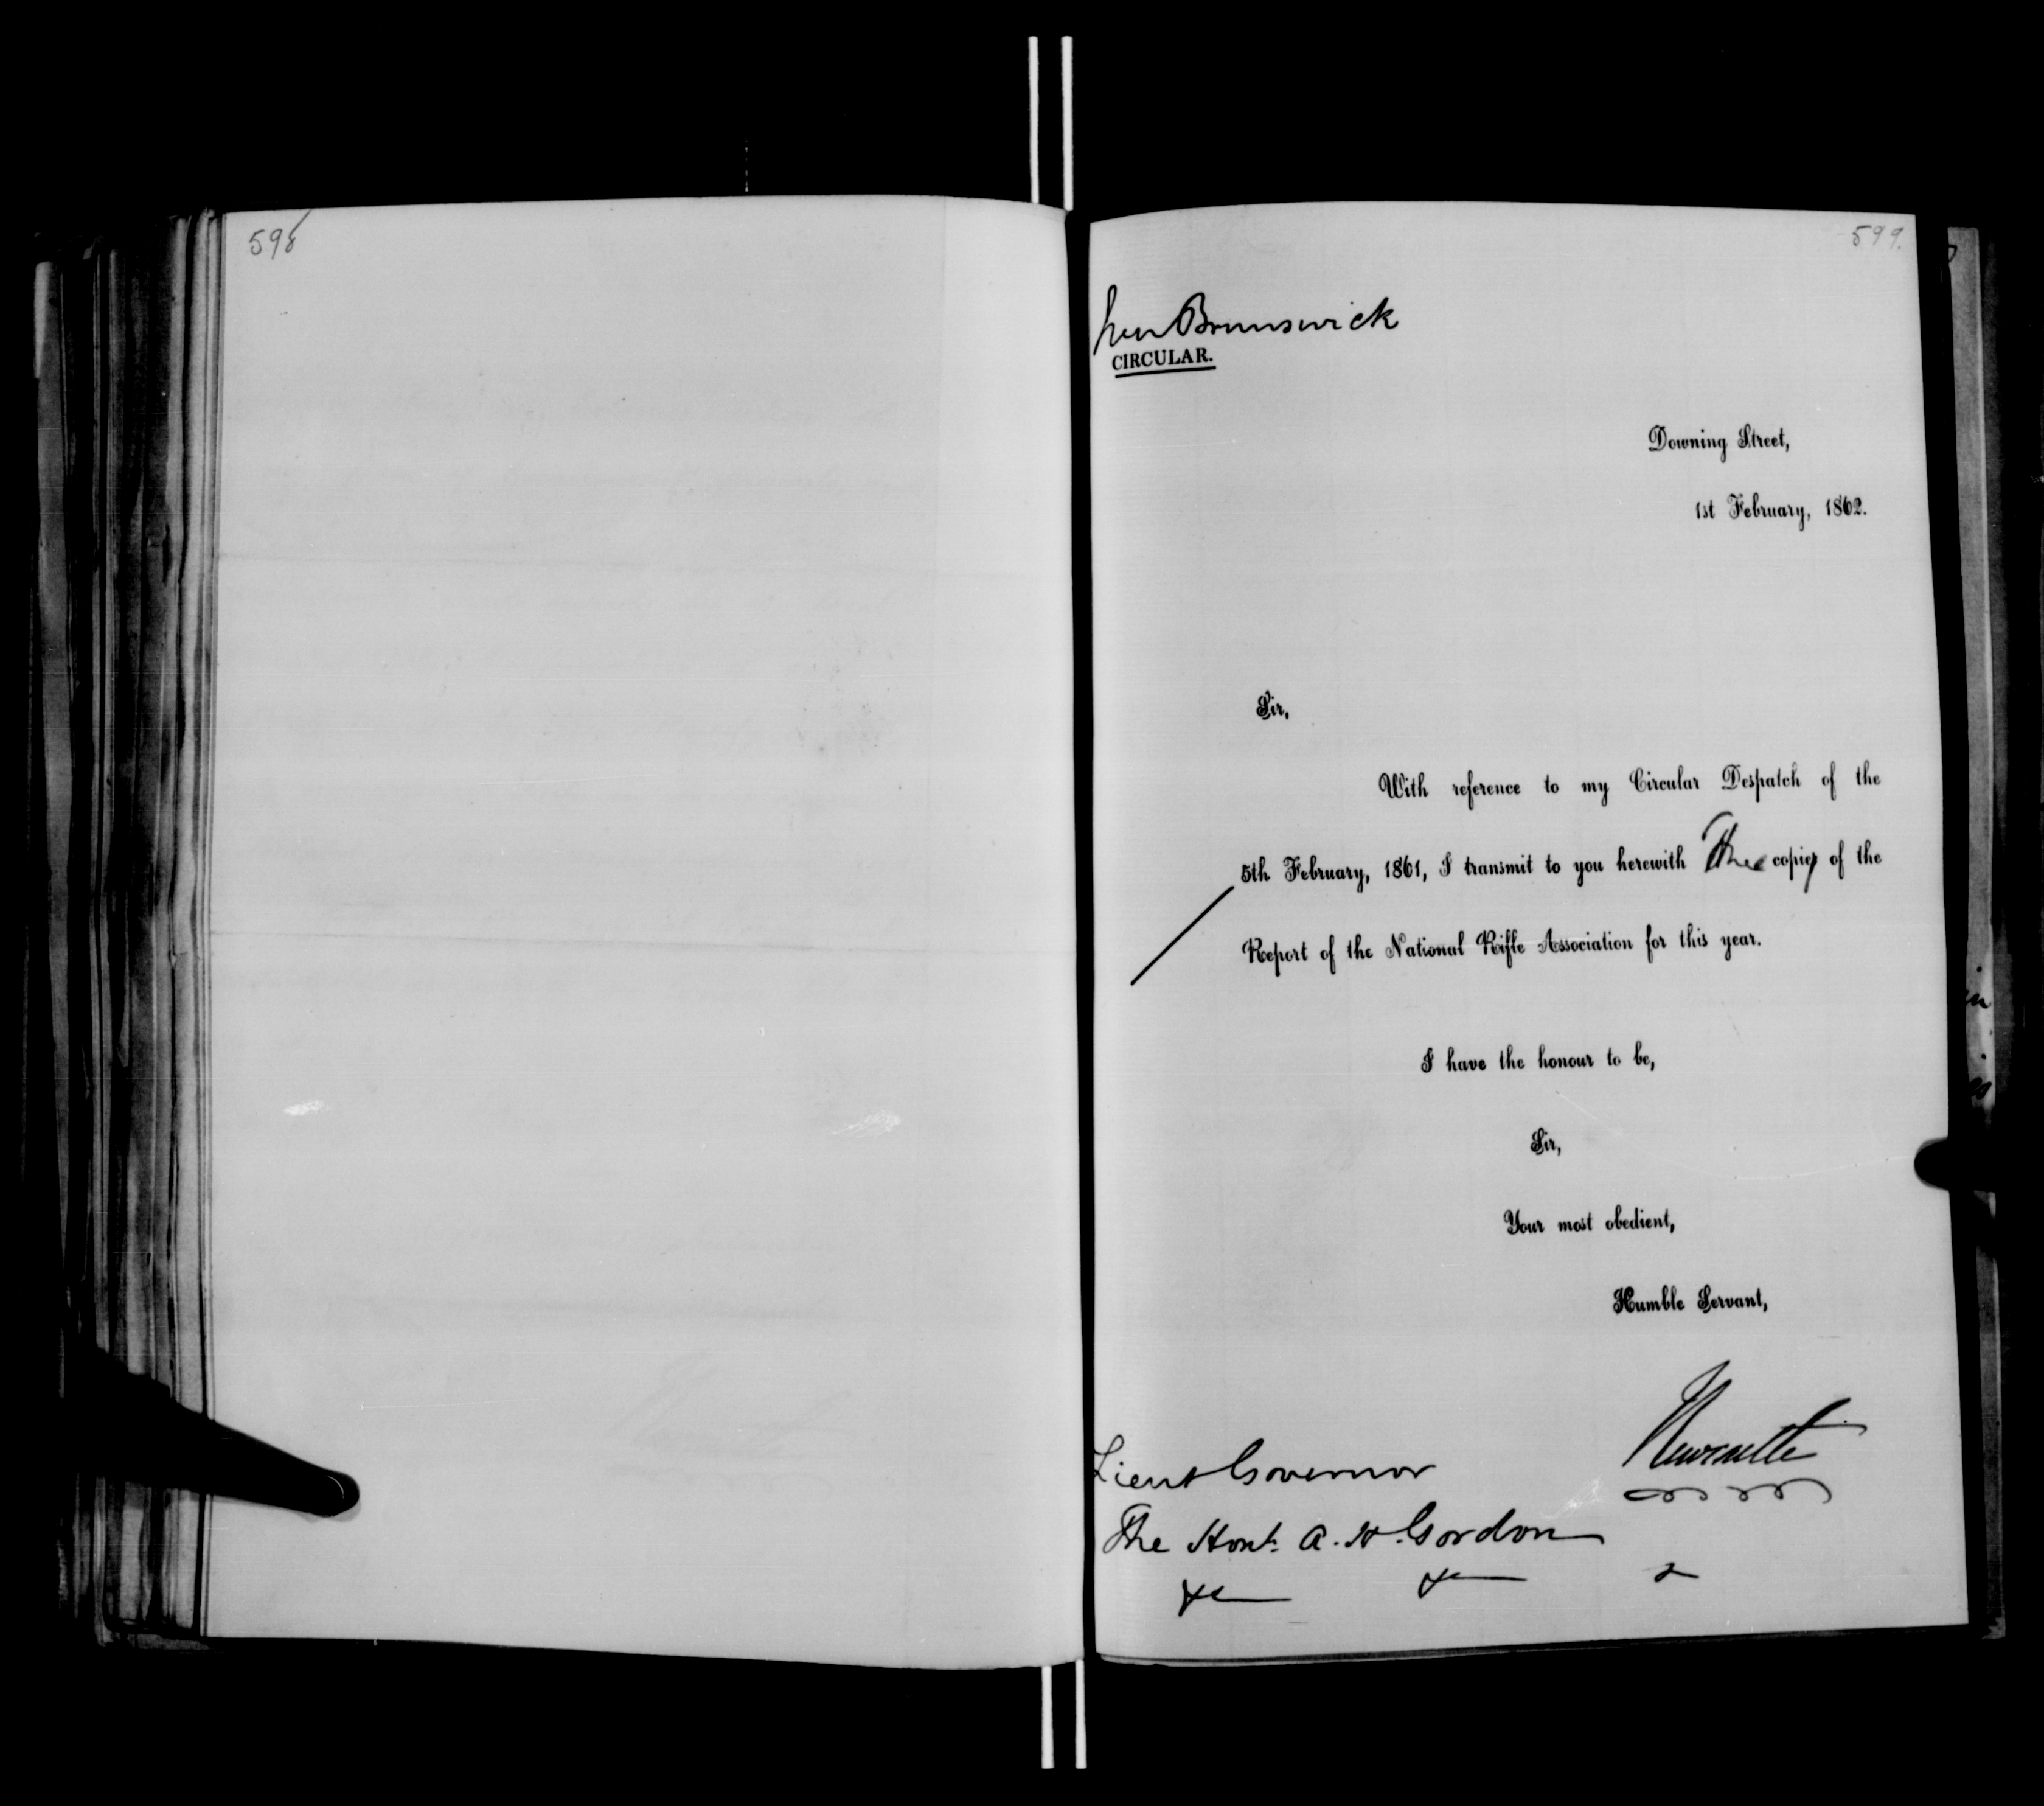 598
599.
New Brunswick
CIRCULAR.
Downing Street,
1st February, 1862.
Sir,
With reference to my Circular Despatch of the
5th February, 1861, I transmit to you herewith Three copies of the
Report of the National Rifle Association for this year.
I have the honour to be,
Sir,
Your most obedient,
Humble Servant,
Newcastle
Lieut Governor
The Honb. A. H. Gordon
&c &c &